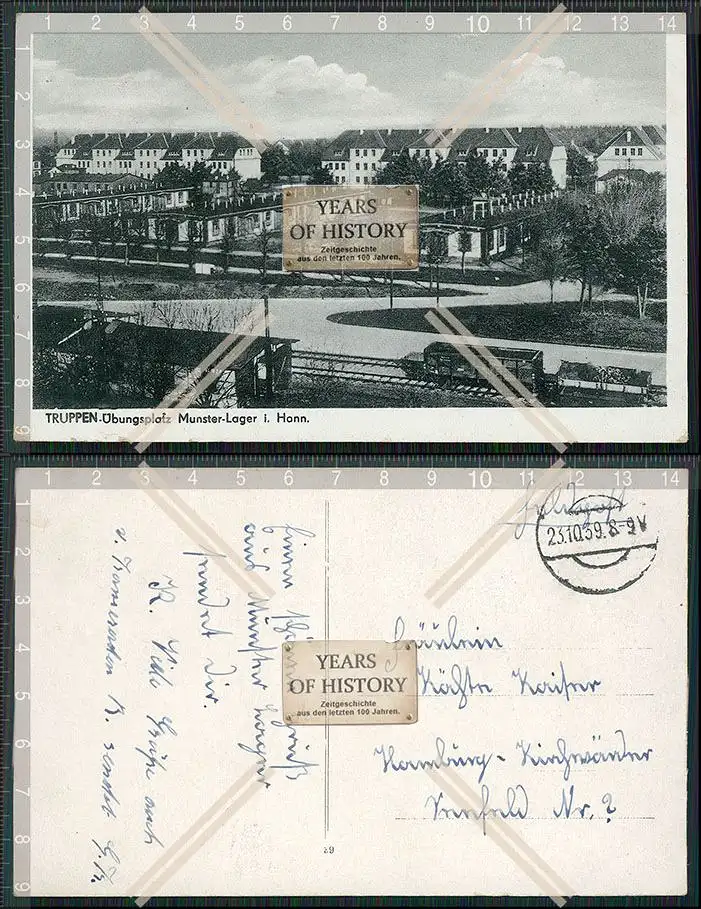 1 2 3 4 5 6 7 8 9 10 11 12 13 14
1
2
3
4
5
6
7
8
9
YEARS
OF HISTORY
Zeitgeschichte
aus den letzten 100 Jahren.
TRUPPEN-Übungsplatz Munster-Lager i. Hann.
1 2 3 4 5 6 7 8 9 10 11 12 13 14
1
2
3
4
5
6
7
8
9
Feldpost
23.10.39. 8-9V
Einen Gruß
aus Munster Lager
sendet Dir.
K. Viele Grüße auch
v. Kameraden B. sendet
YEARS
OF HISTORY
Zeitgeschichte
aus den letzten 100 Jahren.
Fräulein
Käthe Kaiser
Hamburg-Kirchwärder
Nr. ?
29